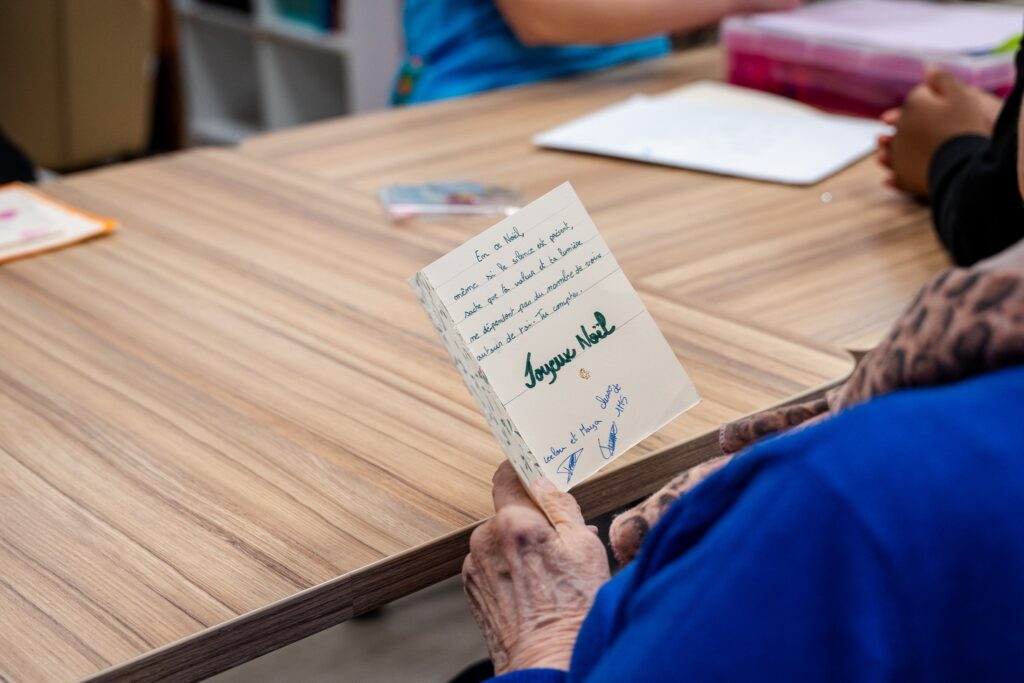 En ce Noël,
même si le silence est présent,
sache que ta valeur et ta lumière
ne dépendent pas du nombre de voix
autour de toi. Tu comptes.
Joyeux Noël
Leelou et Maya classe de
1MS